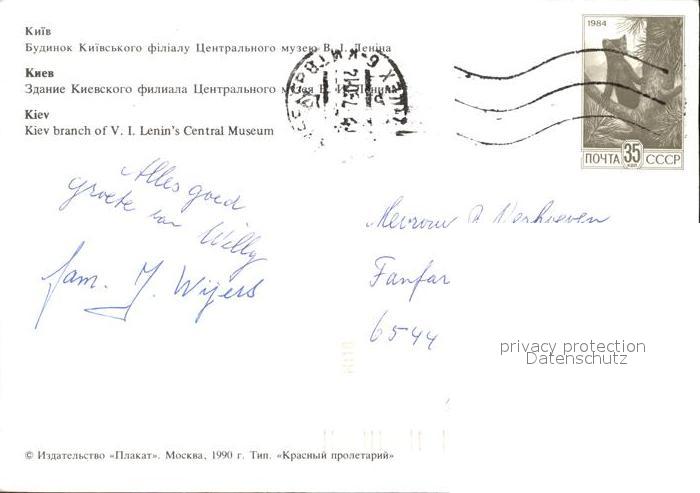 Київ
Будинок Київського філіалу Центрального музею В. І. Леніна
Киев
Здание Киевского филиала Центрального музея В. И. Ленина
Kiev
Kiev branch of V. I. Lenin's Central Museum
1984
ПОЧТА 35 КОП СССР
Alles goed
groete van Willy
fam. J. Wijers
Mevrouw Verhoeven
Fanfar
6544
privacy protection
Datenschutz
© Издательство «Плакат». Москва, 1990 г. Тип. «Красный пролетарий»